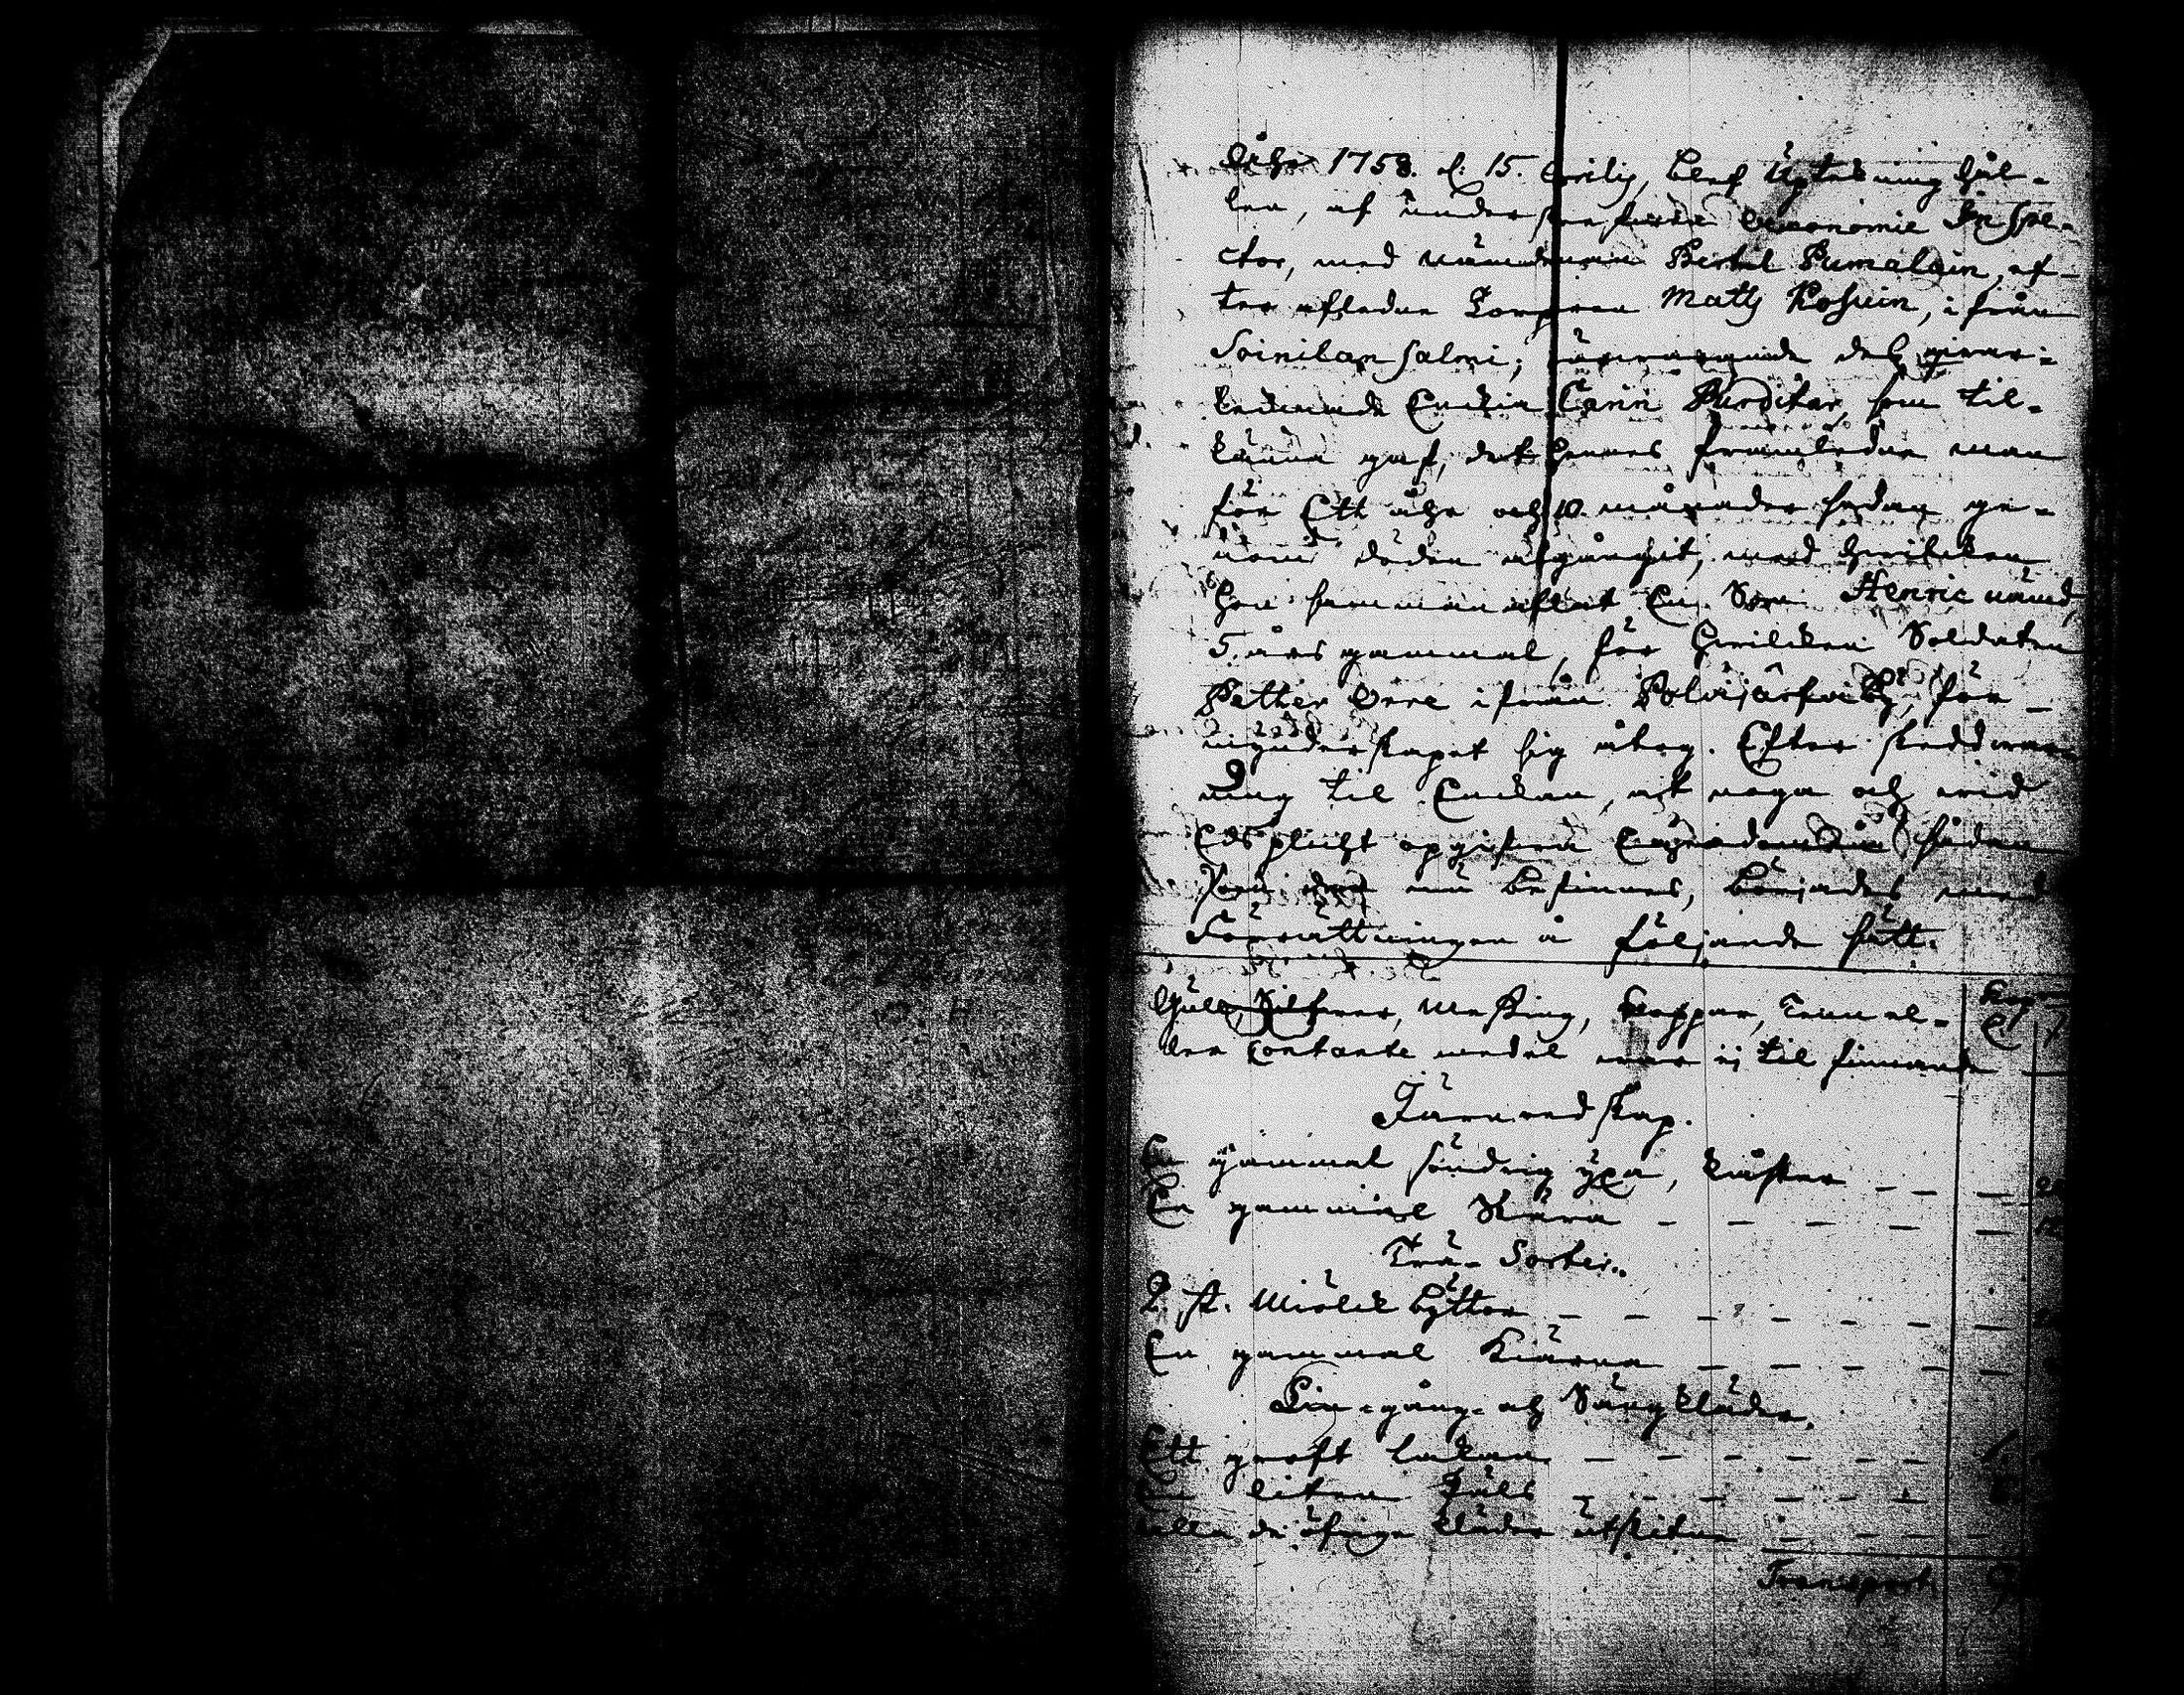 Åhr 1758. d: 15. Aprilis, blef Upteckning hål-
len, af underskrefvne Oeconomie Inspe-
ctor, med nämdeman Bertel Pumalain, ef-
ter afledne Torparen Matts Kosuin, i från
Soinilansalmi; närvarande des qvar-
lefvande Enckia Carin Purditar, som til-
känna gaf, det hennes framledne man
för Ett åhr och 10 månader sedan ge-
nom döden afgångit, med hvilcken
hon samman aflat En Son Henric nämd
5. års gammal, för hvilcken Soldaten
Petter Orre ifrån Polvijärfvi by, för-
mynderskapet sig åtog. Efter skedd var-
ning til Enckan, at noga och vid
Edsplicht opgifva Egendomen sådan
som den nu befinnes, börjades med
Förrättningen å följande sätt.
Gull, Silfver, Messing, Koppar, Tenn el-
ler Contante medel var ej til finnande
Järnredskap.
En gammal söndrig yxa, kåster
En gammal Skära
Trä-Sorter.
2. st. Miölck byttor
En gammal Kiärna
Lin-gång- och Sängkläder.
Ett groft lakan
En liten Päls
alla de öfrige kläder utslitne
Transport